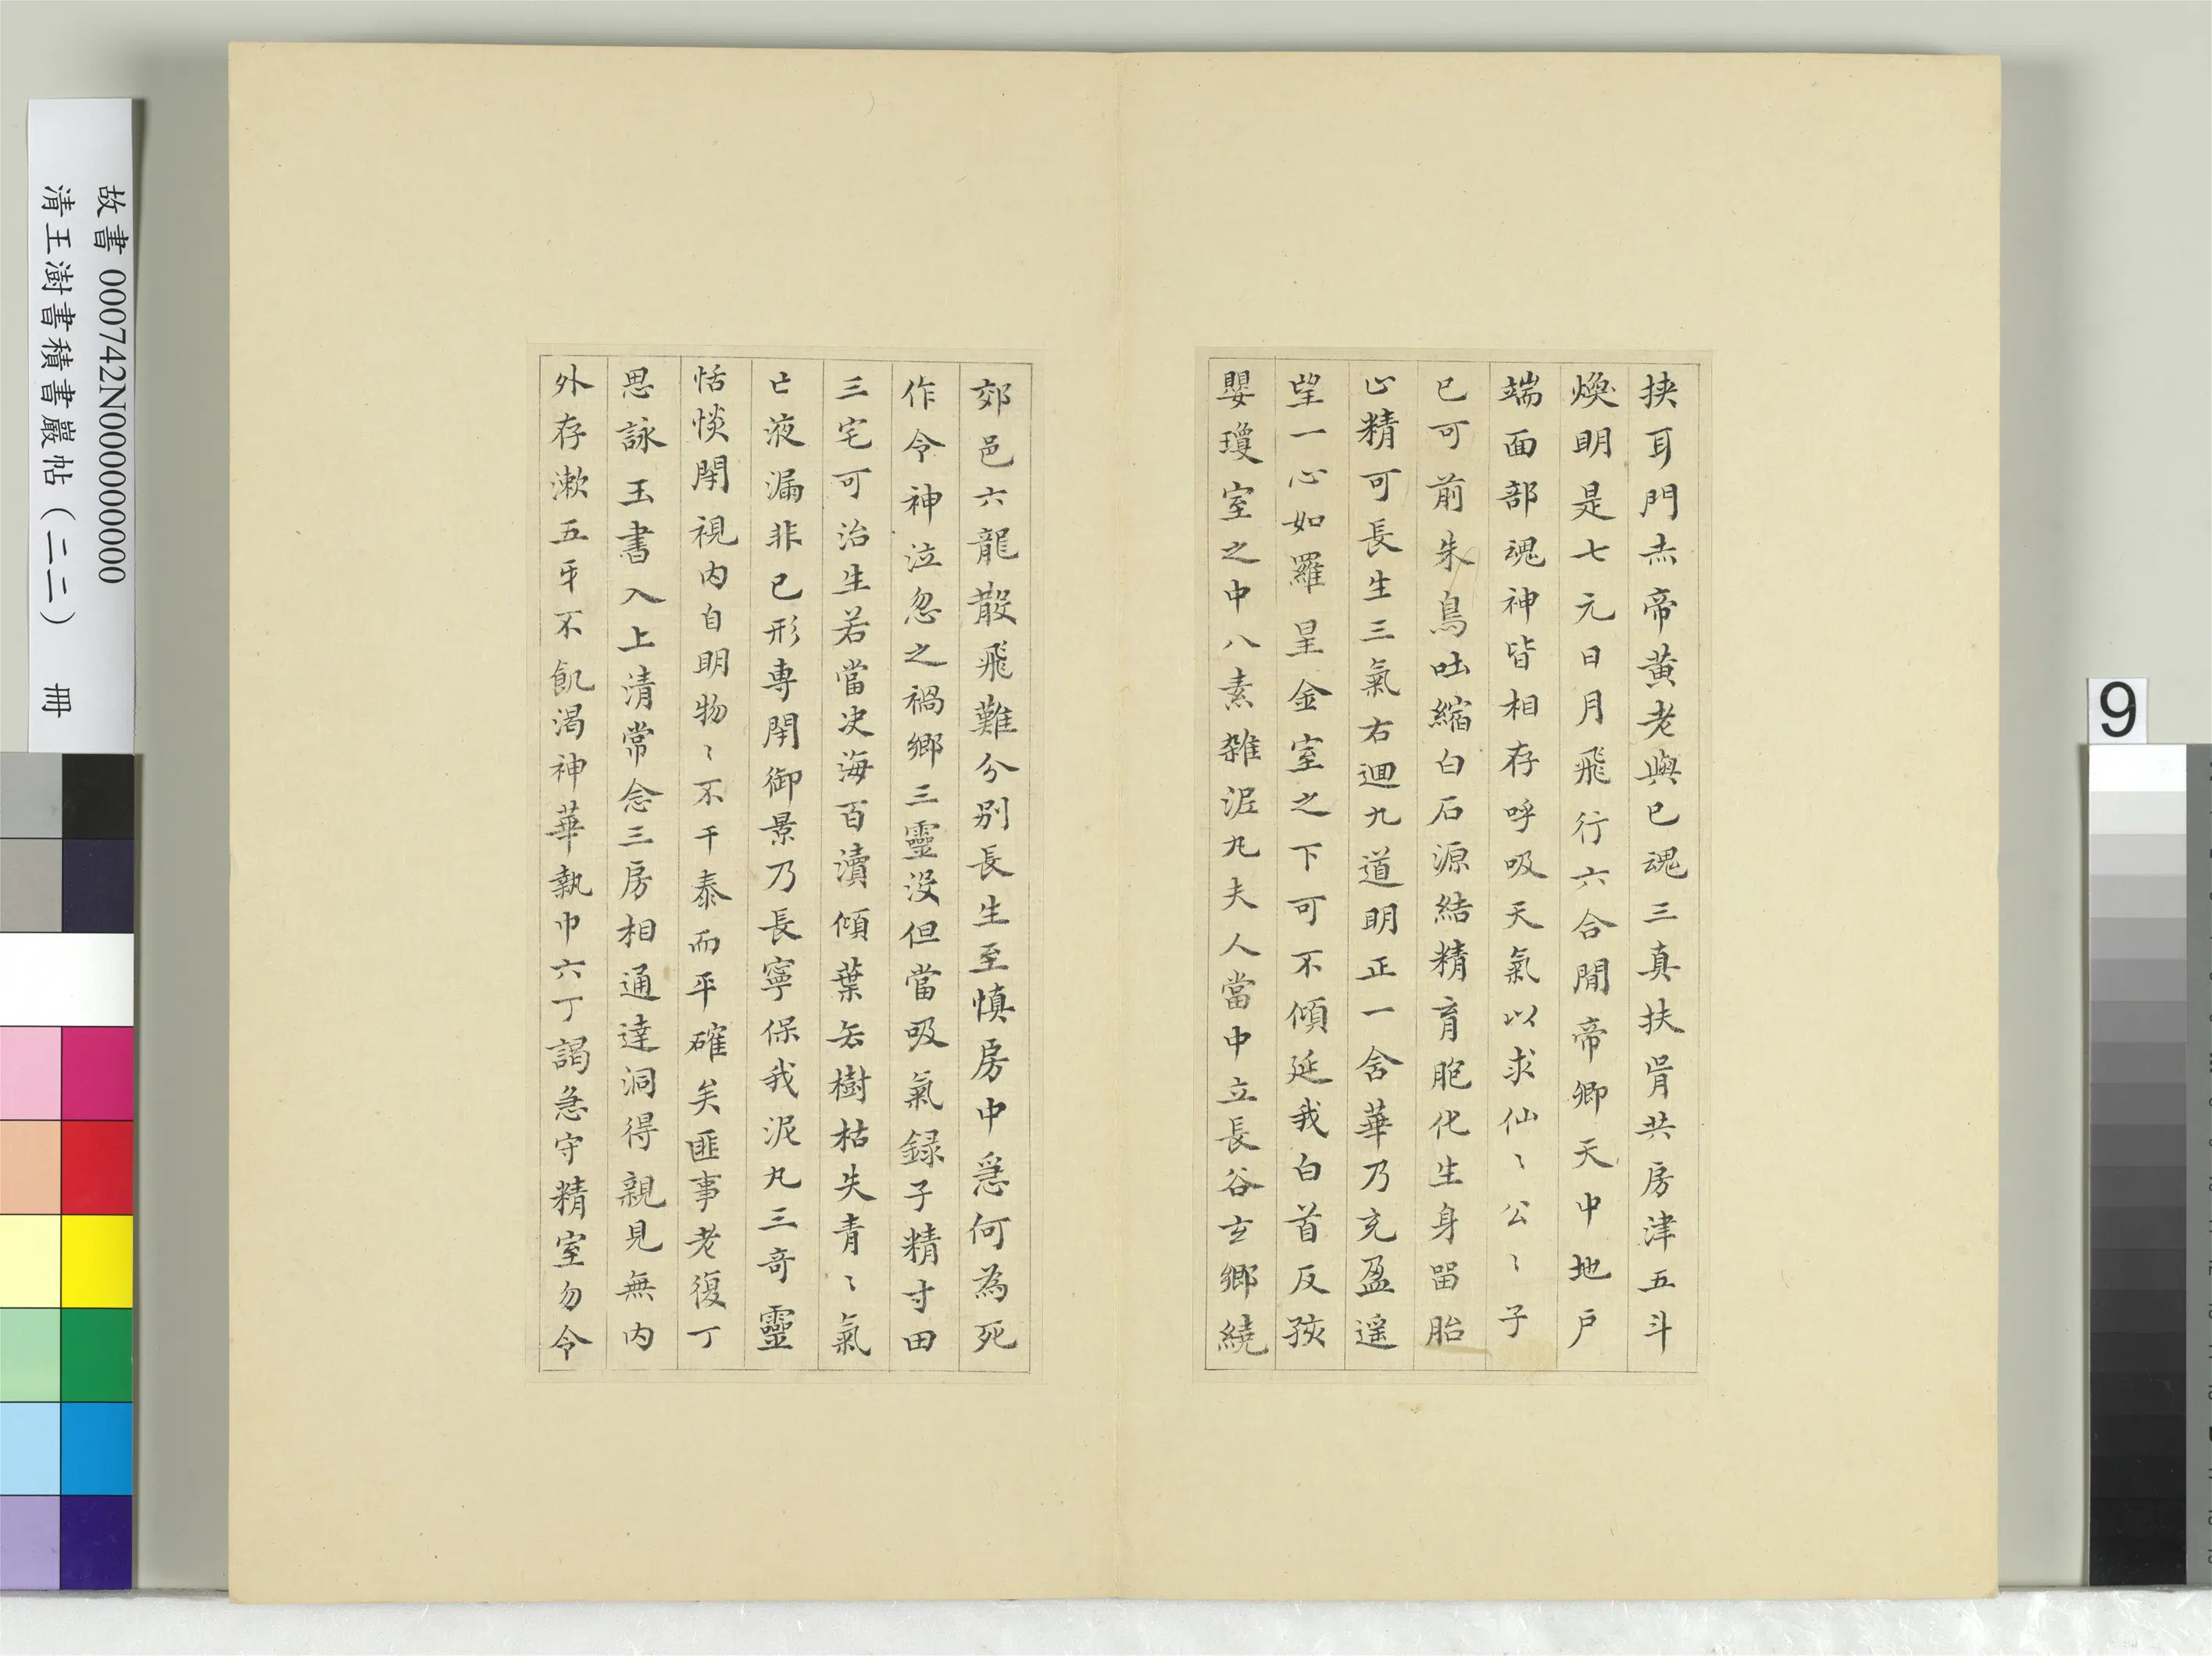 挟耳門赤帝黄老與已魂三真扶胥共房津五斗
煥明是七元日月飛行六合間帝卿天中地户
端面部魂神皆相存呼吸天氣以求仙〻公〻子
已可前朱鳥吐縮白石源結精育胞化生身留胎
止精可長生三氣右迴九道明正一舍華乃充盈遥
望一心如羅星金室之下可不傾延我白首反孩
嬰瓊室之中八素雑泥丸夫人當中立長谷玄郷繞
郊邑六龍散飛難分别長生至慎房中急何為死
作令神泣忽之禍郷三靈没但當吸氣録子精寸田
三宅可治生若當决海百瀆傾葉去樹枯失青〻氣
亡液漏非已形専閉御景乃長寧保我泥丸三奇靈
恬惔閉視内自明物〻不干泰而平確矣匪事老復丁
思詠玉書入上清常念三房相通達洞得親見無内
外存漱五牙不飢渴神華執巾六丁謁急守精室勿令
故書 000742N000000000
清王澍書積書巖帖（二二） 冊
9